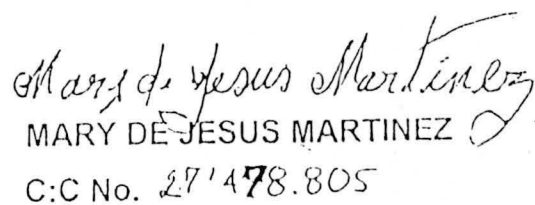 Mary de Jesus Martinez
MARY DE JESUS MARTINEZ
C:C No. 27'478.805